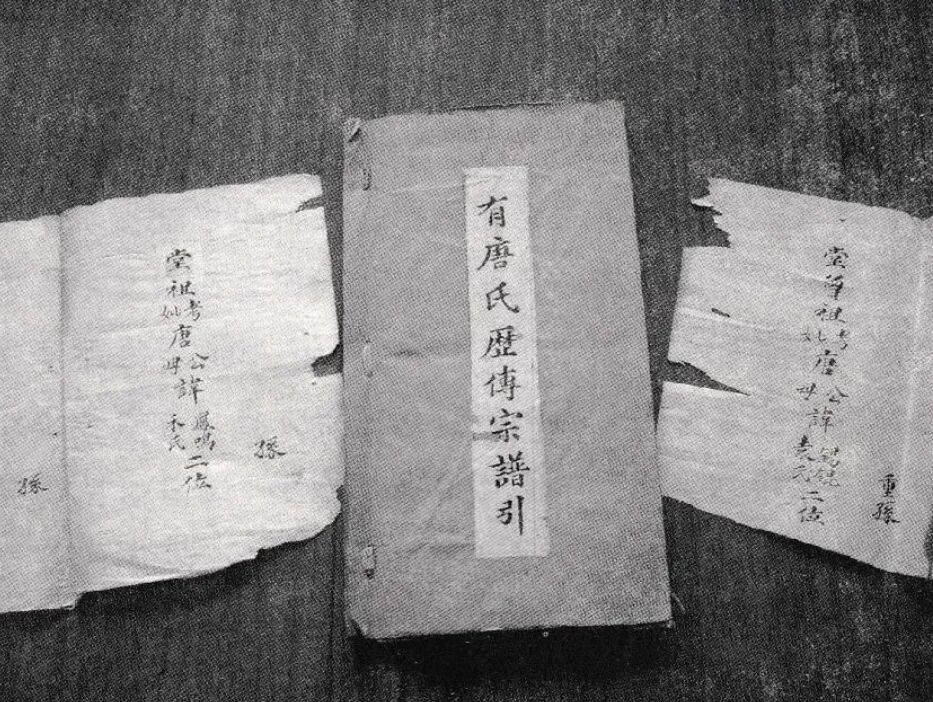 重孫
堂曾祖考妣唐公母諱袁氏二位
有唐氏歷傳宗譜引
孫
堂祖考妣唐公母諱鳳鳴氏二位
孫